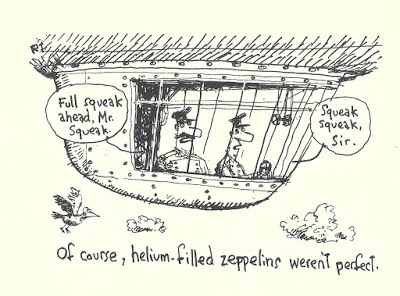 RI
Full squeak
ahead, Mr.
Squeak.
Squeak
squeak,
Sir.
Of course, helium-filled zeppelins weren't perfect.